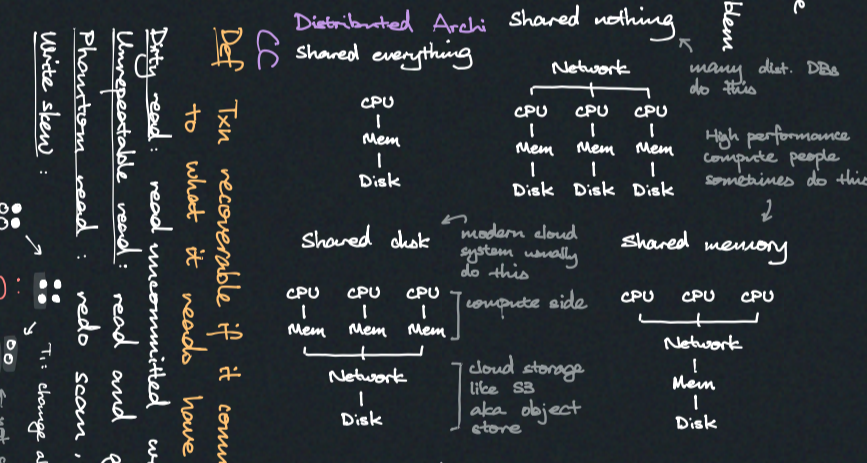 Distributed Archi
Shared everything
CPU
Mem
Disk
Shared nothing
many dist. DBs
do this
Network
CPU CPU CPU
Mem Mem Mem
Disk Disk Disk
High performance
compute people
sometimes do this
Shared disk
modern cloud
system usually
do this
CPU CPU CPU
Mem Mem Mem
compute side
Network
Disk
cloud storage
like S3
aka object
store
Shared memory
CPU CPU CPU
Network
Mem
Disk
CC
Def Txn recoverable if it comm
to what it reads have
Dirty read: read uncommitted
Unrepeatable read: read and
Phantom read: redo scan,
Write skew:
T1: change